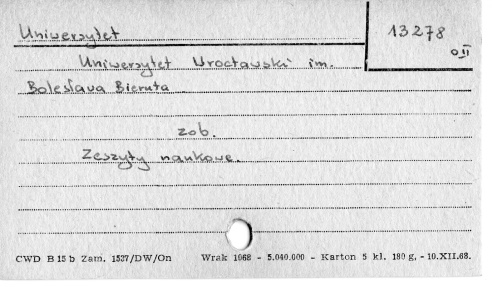 Uniwersytet
13278
0 II
Uniwersytet Wrocławski im.
Bolesława Bieruta
zob.
Zeszyty naukowe.
CWD B 15 b Zam. 1537/DW/On Wrak 1068 - 5.040.000 - Karton 5 kl. 180 g. - 10.XII.68.